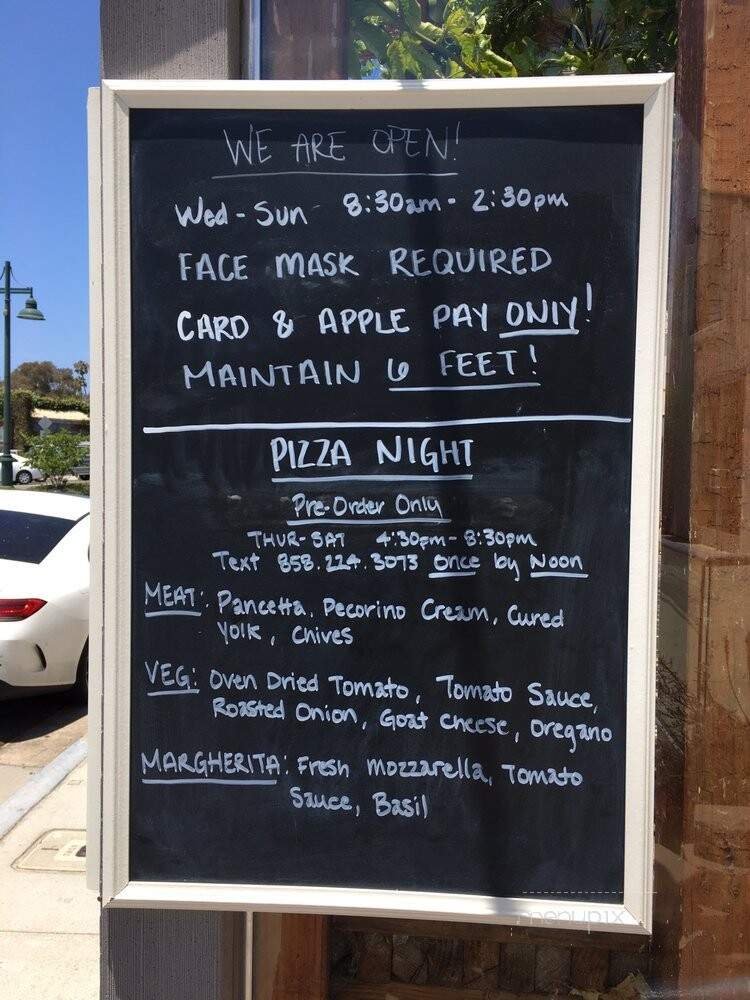 WE ARE OPEN!
Wed - Sun 8:30am - 2:30pm
FACE MASK REQUIRED
CARD & APPLE PAY ONLY!
MAINTAIN 6 FEET!
PIZZA NIGHT
Pre-Order Only
THUR-SAT 4:30pm - 8:30pm
Text 858.224.3073 once by Noon
MEAT: Pancetta, Pecorino Cream, Cured
Yolk, Chives
VEG: Oven Dried Tomato, Tomato Sauce,
Roasted Onion, Goat cheese, oregano
MARGHERITA: Fresh mozzarella, Tomato
Sauce, Basil
menupix